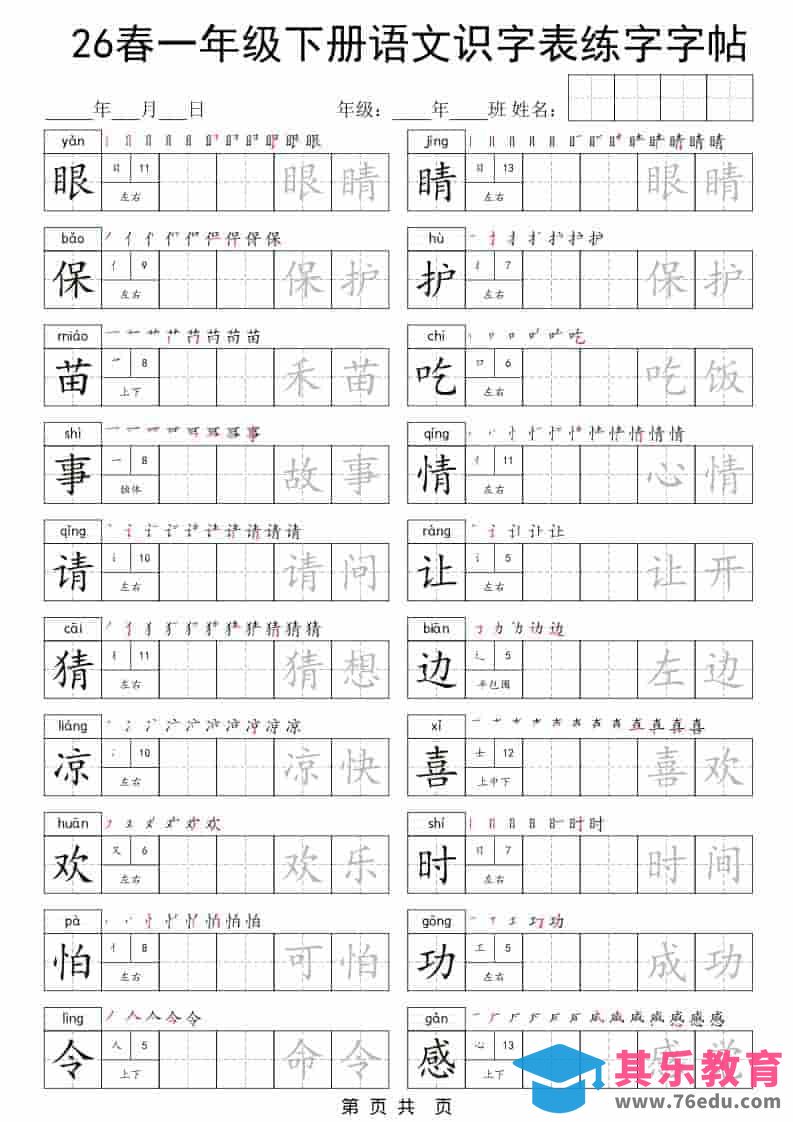 26春一年级下册语文识字表练字字帖
____年___月___日 年级：____年____班 姓名：
yǎn jīng
眼 目 11 左右 眼 睛 睛 日 13 左右 眼 睛
bǎo hù
保 亻 9 左右 保 护 护 扌 7 左右 保 护
miáo chī
苗 艹 8 上下 禾 苗 吃 口 6 左右 吃 饭
shì qíng
事 一 8 独体 故 事 情 忄 11 左右 心 情
qǐng ràng
请 讠 10 左右 请 问 让 讠 5 左右 让 开
cāi biān
猜 犭 11 左右 猜 想 边 辶 5 半包围 左 边
liáng xǐ
凉 冫 10 左右 凉 快 喜 士 12 上中下 喜 欢
huān shí
欢 又 6 左右 欢 乐 时 日 7 左右 时 间
pà gōng
怕 忄 8 左右 可 怕 功 工 5 左右 成 功
lìng gǎn
令 人 5 上下 命 令 感 心 13 上下 感 觉
其乐教育
www.76edu.com
第 页 共 页